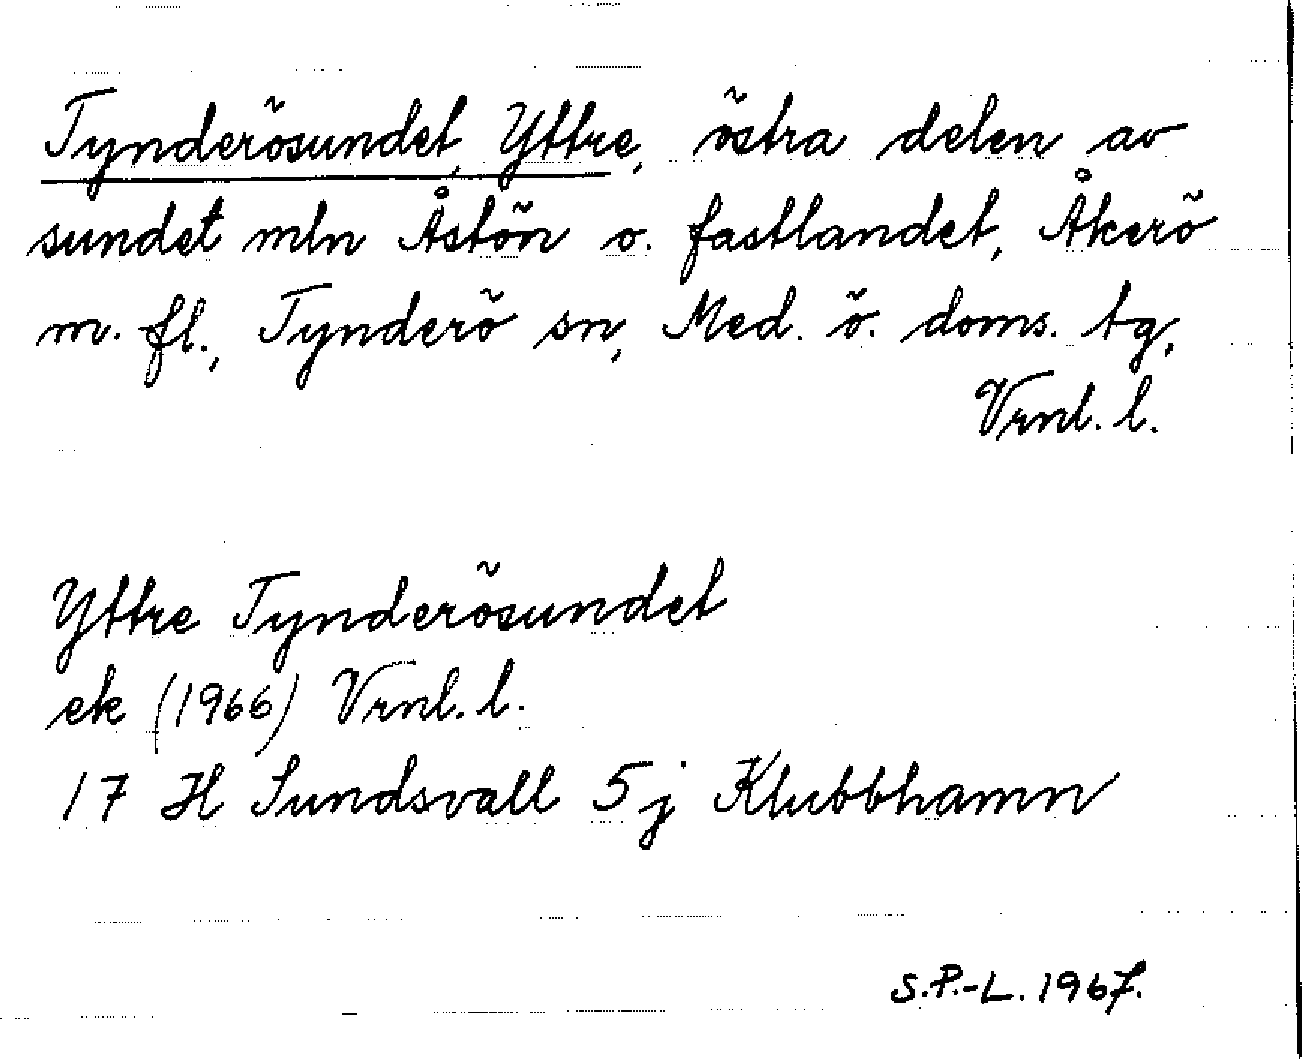 Tynderösundet, Yttre, östra delen av
sundet mln Åstön o. fastlandet, Åkerö
m. fl., Tynderö sn, Med. ö. doms. tg,
Vrnl. l.
Yttre Tynderösundet
ek (1966) Vrnl. l.
17 H Sundsvall 5j Klubbhamn
S.P.-L. 1967.